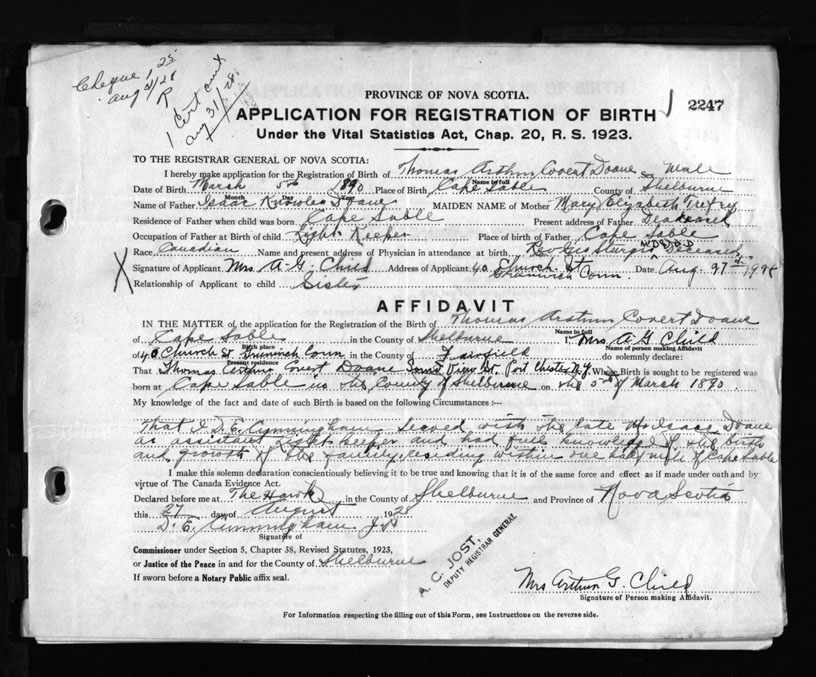 Cheque 1.25
Aug 31/28
R
1 Cert out
Aug 31/28
PROVINCE OF NOVA SCOTIA.
APPLICATION FOR REGISTRATION OF BIRTH 2247
Under the Vital Statistics Act, Chap. 20, R. S. 1923.
TO THE REGISTRAR GENERAL OF NOVA SCOTIA:
I hereby make application for the Registration of Birth of Thomas Arthur Covert Doane Sex Male
Name in full
Date of Birth March 5th 1890 Place of Birth Cape Sable County of Shelburne
Month Day Year
Name of Father Isaac Knowles Doane MAIDEN NAME of Mother Mary Elizabeth Trefry
Residence of Father when child was born Cape Sable Present address of Father Deaceased
Occupation of Father at Birth of child Light Keeper Place of birth of Father Cape Sable
Race Canadian Name and present address of Physician in attendance at birth Deceased
X Signature of Applicant Mrs A. G. Child Address of Applicant 40 Church St Greenwich Conn. Date Aug. 27th 1928
Relationship of Applicant to child Sister
AFFIDAVIT
IN THE MATTER of the application for the Registration of the Birth of Thomas Arthur Covert Doane
Name in full
of Cape Sable in the County of Shelburne I, Mrs A G Child
Birth place Name of person making Affidavit
of 40 Church St Greenwich Conn in the County of Fairfield do solemnly declare:
Present residence
That Thomas Arthur Covert Doane Sound View St. Port Chester N.Y. Whose Birth is sought to be registered was
born at Cape Sable in the County of Shelburne on the 5th of March 1890.
My knowledge of the fact and date of such Birth is based on the following Circumstances :—
That I D. E. Cunningham served with the late Mr Isaac Doane
as assistant Light keeper and had full knowledge of the birth
and growth of the family, residing within one half mile of Cape Sable
I make this solemn declaration conscientiously believing it to be true and knowing that it is of the same force and effect as if made under oath and by
virtue of The Canada Evidence Act.
Declared before me at The Hawk in the County of Shelburne and Province of Nova Scotia
this 27 day of August 1928
D. E. Cunningham J.P.
Signature of
Commissioner under Section 5, Chapter 38, Revised Statutes, 1923,
or Justice of the Peace in and for the County of Shelburne
If sworn before a Notary Public affix seal.
A. C. JOST,
DEPUTY REGISTRAR GENERAL
Mrs Arthur G. Child
Signature of Person making Affidavit.
For Information respecting the filling out of this Form, see Instructions on the reverse side.